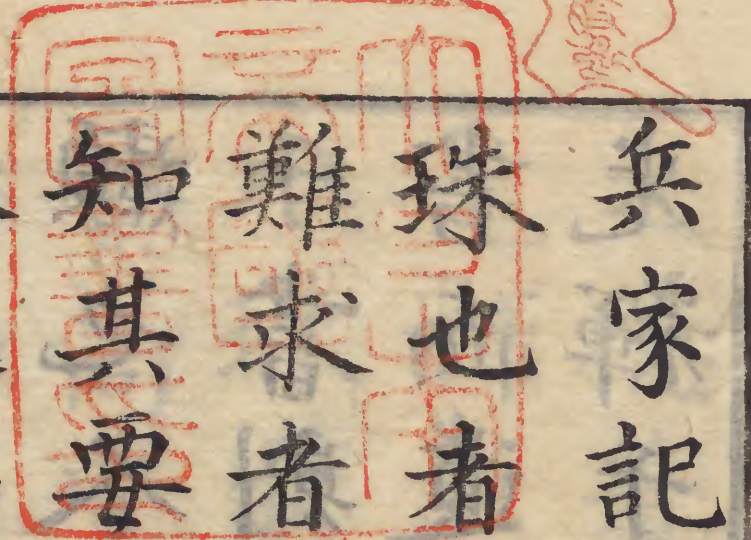 兵家記
珠也者
難求者
知其要